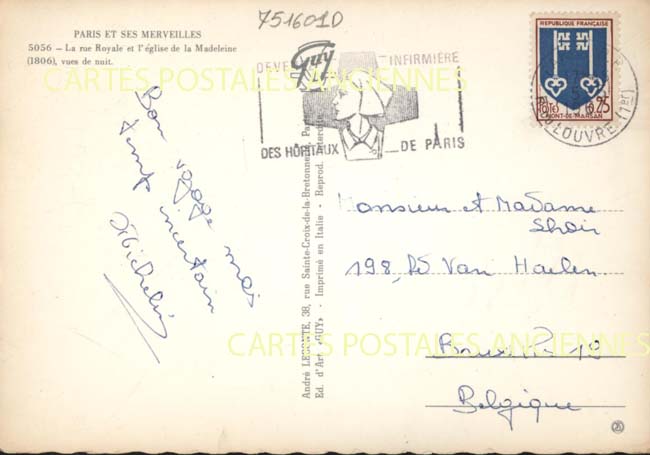 751601D
PARIS ET SES MERVEILLES
5056 - La rue Royale et l'église de la Madeleine
(1806), vues de nuit.
DEVENEZ INFIRMIÈRE
Guy
DES HÔPITAUX DE PARIS
REPUBLIQUE FRANÇAISE
POSTES 0,25
MONT-DE-MARSAN
LOUVRE (1er)
CARTES POSTALES ANCIENNES
Bon voyage mais
temps incertain
Michelin
André LECONTE, 38, rue Sainte-Croix-de-la-Bretonnerie, Paris
Ed. d'Art «GUY» - Imprimé en Italie - Reprod. interdite
Monsieur et Madame
198, Bd Van Haelen
Belgique
CARTES POSTALES ANCIENNES